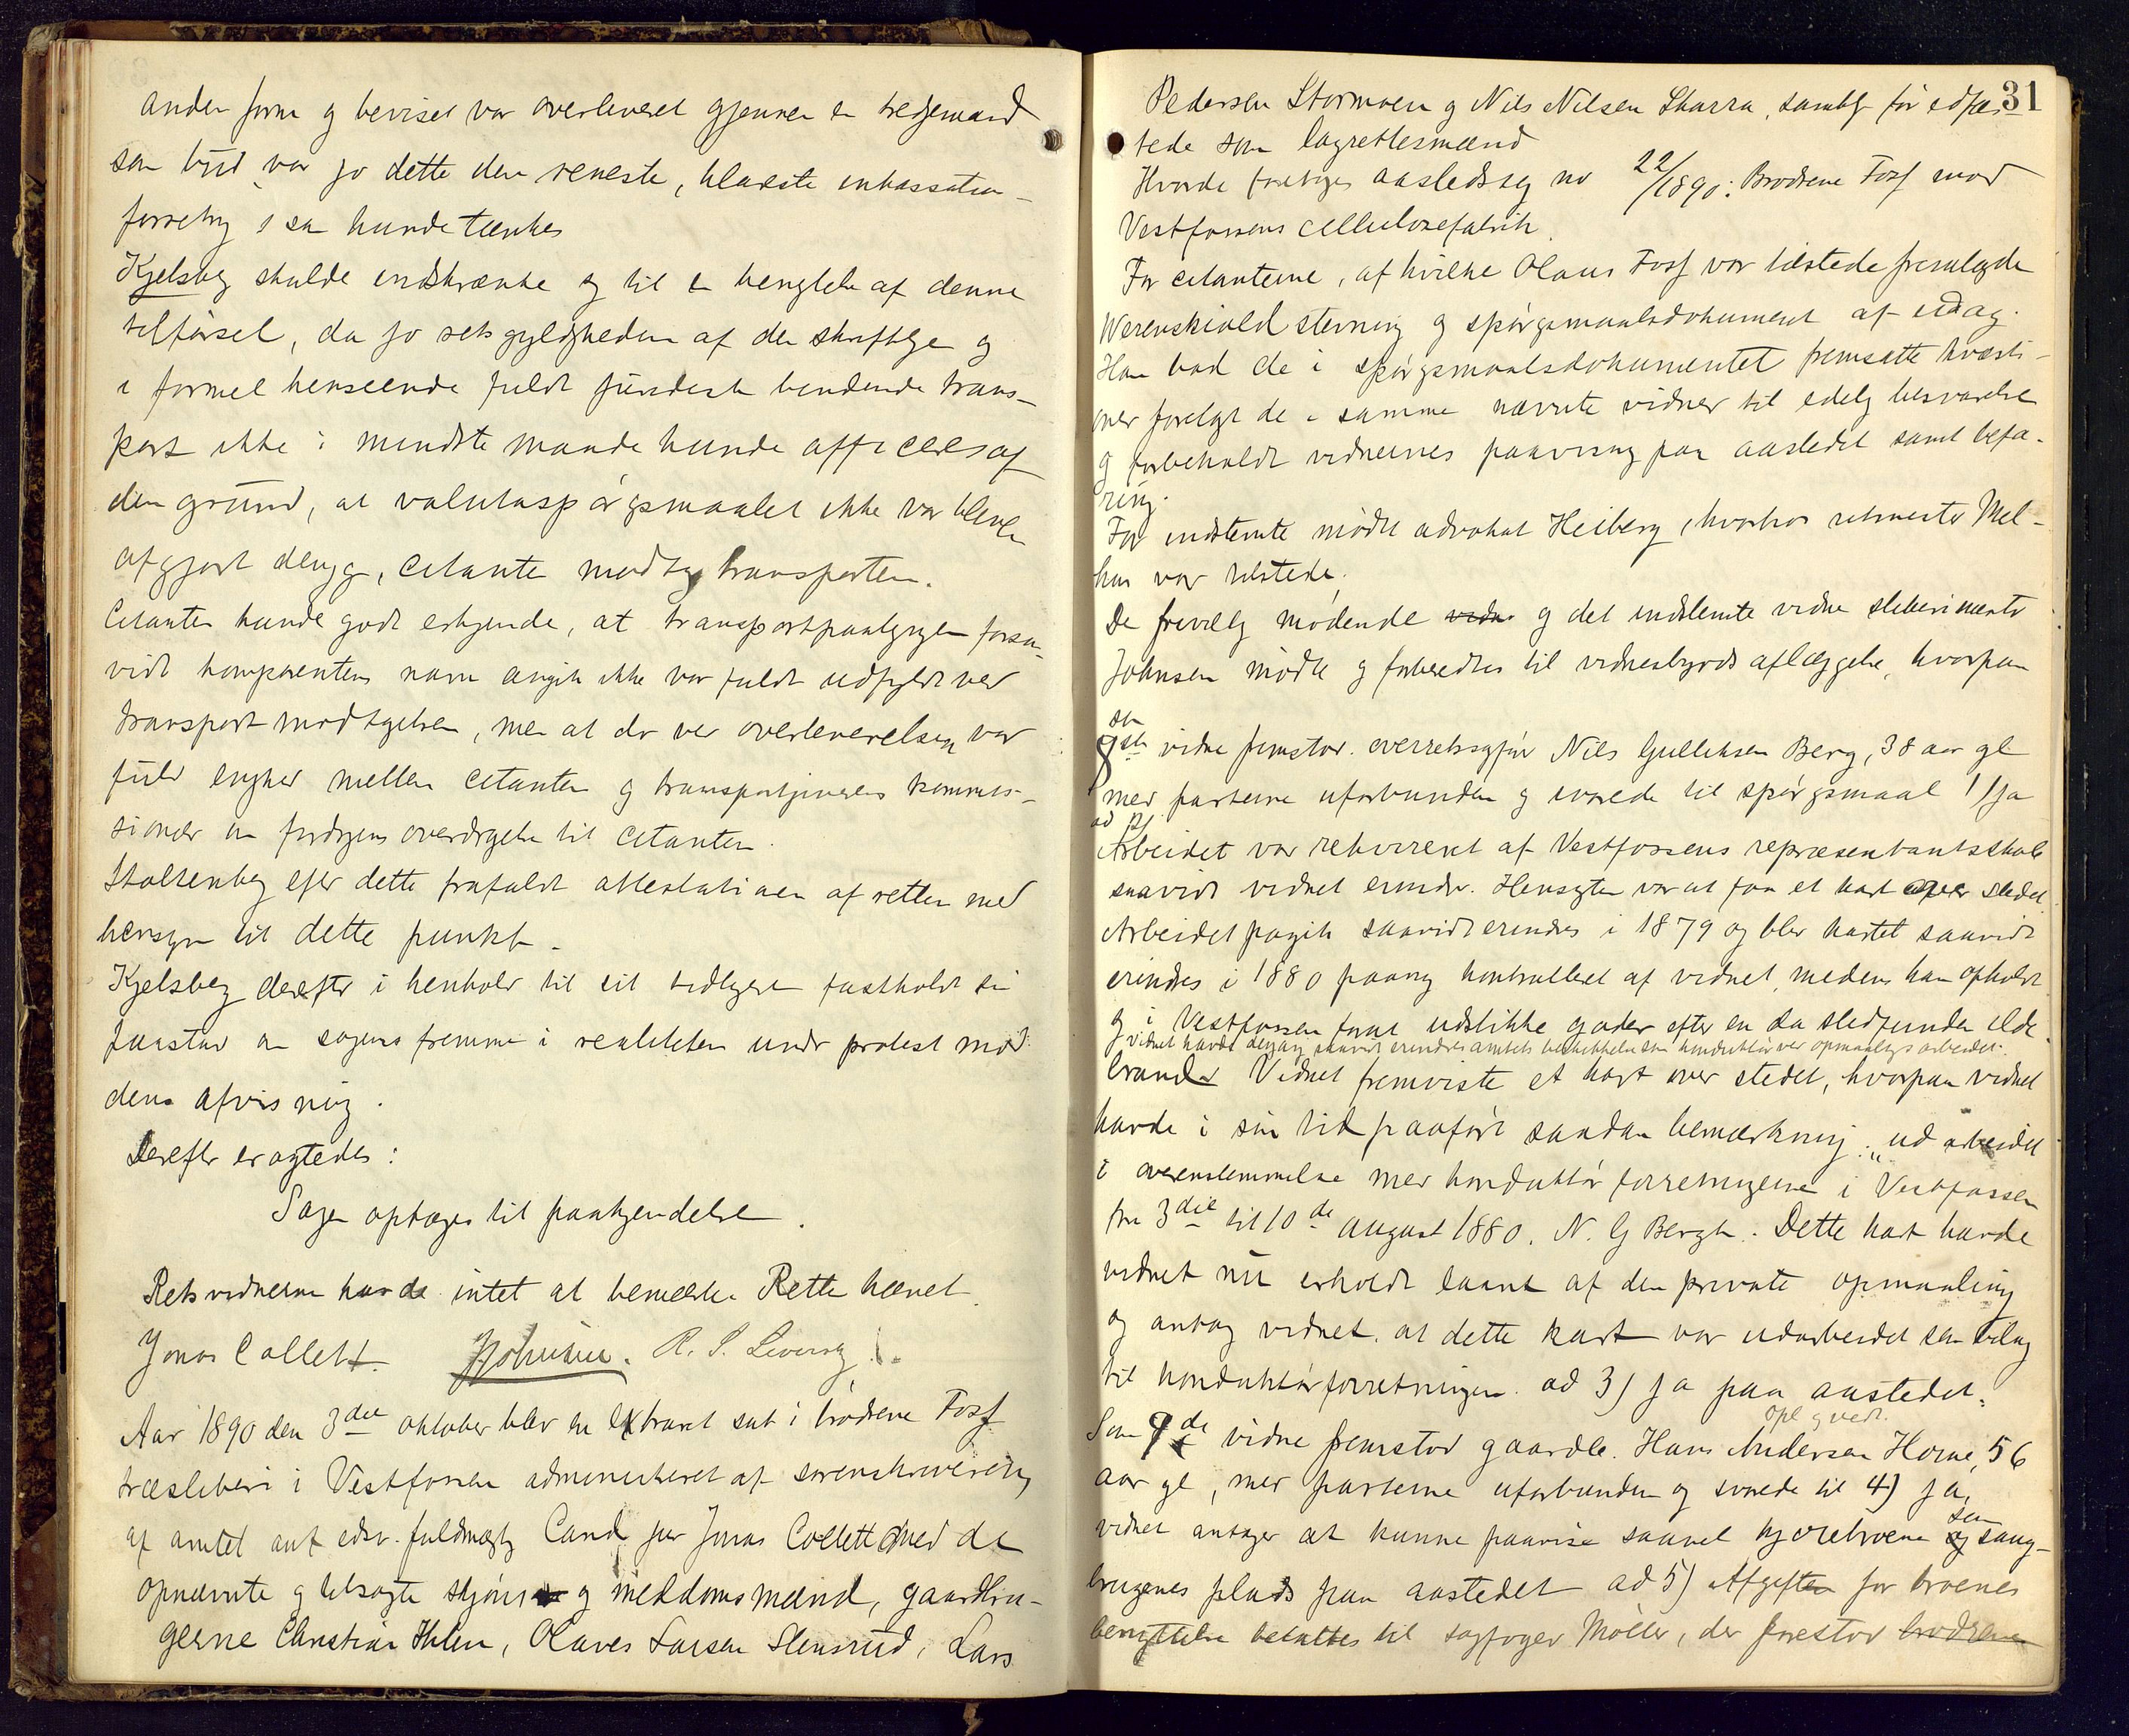 anden form og beviset var overleveret gjennem en tredjemand
som bud, var jo dette den reneste, klareste inkassations-
forretng, som kunde tænkes
Kjelsberg skulde indskrænke sig til en benegtelse af denne
tilførsel, da jo retsgyldigheden af den skriftlige og
i formel henseende fuldt juridisk bindende trans-
port ikke i mindste maade kunde afficeres af
den grund, at valutaspørgsmaalet ikke var bleven
afgjort dengg, citanten modtog transporten.
Citanten kunde godt erkjende, at transportpaategngen forsaa-
vidt komparentens navn angik ikke var fuldt udfyldt ved
transportmodtagelsen, men at der ved overleverelsen var
fuld enighed mellem citanten og transportgiverens kommis-
sionær om fordrgens overdragelse til citanten.
Stoltenberg efter dette frafaldt attestationen af retten med
hensyn til dette punkt.
Kjelsberg derefter i henhold til sit tidligere fastholdt sin
paastand om sagens fremme i realiteten under protest mod
dens afvisning.
Derefter eragtedes:
Sagen optages til paakjendelse.
Retsvidnerne havde intet at bemærke. Retten hævet.
Jonas Collett. JJohnsen. R. S.
Aar 1890 den 3die oktober blev en extraret sat i brødrene Foss
træsliberi i Vestfossen administreret af sorenskriverens
af amtet ant edsv. fuldmægtg Cand jur Jonas Collett med de
opnævnte og tilsagte skjøns og meddomsmænd, gaardbru-
gerne Christian Hulen, Olaves Larsen Stensrud, Lars
31
Pedersen Stormoen og Nils Nilsen Skarra, samtlige før edfæs-
tede som lagrettesmænd
Hvorda foretoges aastedssag no 22/1890: Brødrene Foss mod
Vestfossens cellulosefabrik.
For citanterne, af hvilke Olaus Foss var tilstede fremlagde
Werenskiold stevning og spørgsmaalsdokument af idag.
Han bad de i spørgsmaalsdokumentet fremsatte kvæsti-
oner forelagt de i samme nævnte vidner til edelig besvarelse
og forbeholdt vidnernes paavisng paa aastedet samt befa-
ring.
For indstevnte mødte advokat Heiberg, hvorhos ritmester Mel-
hus var tilstede.
De frivillig mødende vidner og det indstevnte vidne sliberimester
Johnsen mødte og forberedtes til vidnesbyrds aflæggelse, hvorpaa
som
1ste vidne fremstod overretssagfør Nils Gulliksen Berg, 38 aar gl
med parterne uforbunden og svarede til spørgsmaal 1) Ja
ad 2)
Arbeidet var rekvireret af Vestfossens repræsentantskab
saavidt vidnet erindr. Hensigten var at faa et kart over stedet
Arbeidet pagik saavidt erindres i 1879 og blev kartet saavidt
erindres i 1880 paany kontrolleret af vidnet, medens han opholdt
sig i Vestfossen forat udstikke gader efter en da stedfunden ilde-
vidnet havde dengang saavidt erindres amtets beskikkelse som konduktør ved opmaalings arbeidet.
brand. Vidnet fremviste et kart over stedet, hvorpaa vidnet
havde i sin tid paaført saadan bemærkning: „udarbeidet
i overensstemmelse med konduktør forretningerne i Vestfossen
fra 3die til 10de august 1880. N. G Bergh. Dette kart havde
vidnet nu erholdt laant af den private opmaaling
og antog vidnet, at dette kart var udarbeidet som bilag
til konduktørforretningen. ad 3) ja paa aastedet.
opl og vedt.
Som 2de vidne fremstod gaardbr. Hans Andersen Horne, 56
aar gl, med parterne uforbunden og svarede til 4) ja,
vidnet antager at kunne paavise saavel kjørebroene og som saug-
brugenes plads paa aastedet ad 5) Afgiften for broenes
benyttelse betaltes til sagfoged Møller, der forestod brødrene